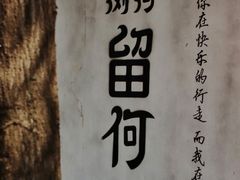 留何
你在快乐的行走 而我在